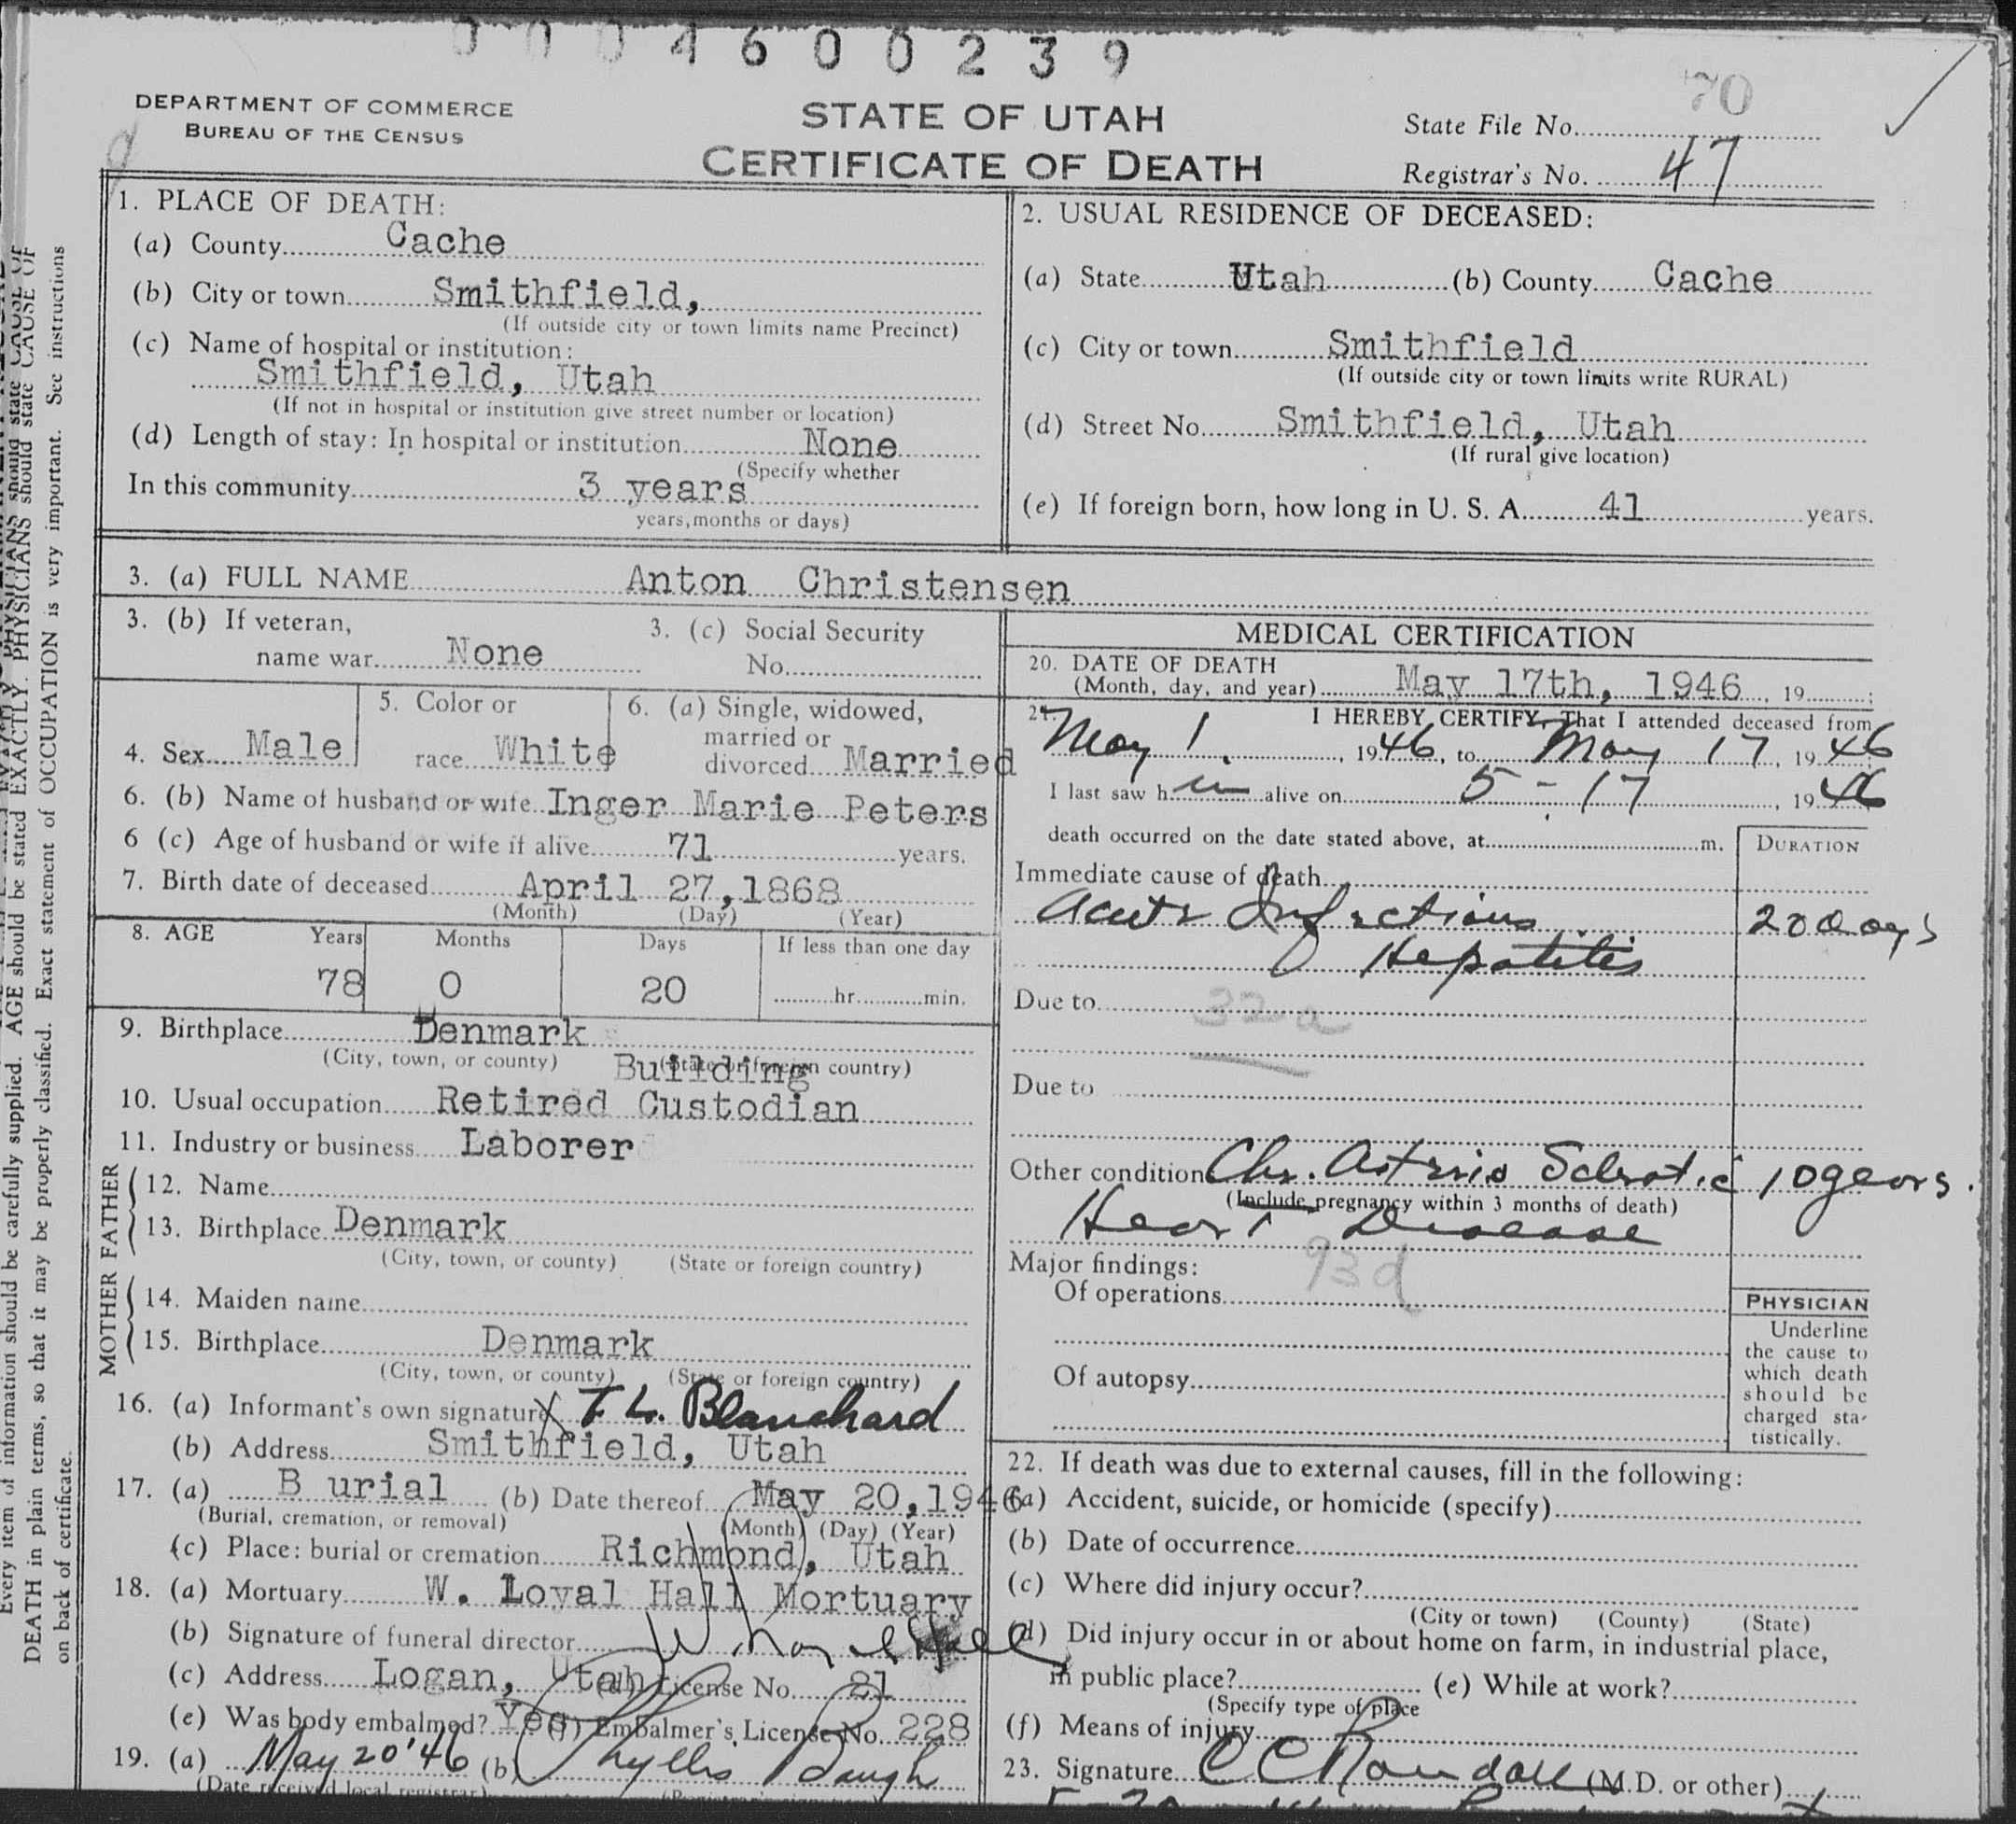 0004600239
70
DEPARTMENT OF COMMERCE
BUREAU OF THE CENSUS
STATE OF UTAH
CERTIFICATE OF DEATH
State File No.
Registrar's No. 47
1. PLACE OF DEATH:
(a) County Cache
(b) City or town Smithfield,
(If outside city or town limits name Precinct)
(c) Name of hospital or institution:
Smithfield, Utah
(If not in hospital or institution give street number or location)
(d) Length of stay: In hospital or institution None
(Specify whether
In this community 3 years
years, months or days)
2. USUAL RESIDENCE OF DECEASED:
(a) State Utah (b) County Cache
(c) City or town Smithfield
(If outside city or town limits write RURAL)
(d) Street No. Smithfield, Utah
(If rural give location)
(e) If foreign born, how long in U. S. A. 41 years.
3. (a) FULL NAME Anton Christensen
3. (b) If veteran,
name war None
3. (c) Social Security
No.
4. Sex Male
5. Color or
race White
6. (a) Single, widowed,
married or
divorced Married
6. (b) Name of husband or wife Inger Marie Peters
6 (c) Age of husband or wife if alive 71 years.
7. Birth date of deceased April 27, 1868
(Month) (Day) (Year)
8. AGE Years Months Days If less than one day
78 0 20 hr. min.
9. Birthplace Denmark
(City, town, or county) (State or foreign country)
Building
10. Usual occupation Retired Custodian
11. Industry or business Laborer
FATHER
12. Name
13. Birthplace Denmark
(City, town, or county) (State or foreign country)
MOTHER
14. Maiden name
15. Birthplace Denmark
(City, town, or county) (State or foreign country)
16. (a) Informant's own signature X T. L. Blanchard
(b) Address Smithfield, Utah
17. (a) B urial (b) Date thereof May 20, 1946
(Burial, cremation, or removal) (Month) (Day) (Year)
(c) Place: burial or cremation Richmond, Utah
18. (a) Mortuary W. Loyal Hall Mortuary
(b) Signature of funeral director W Loyal Hall
(c) Address Logan, Utah (d) License No. 21
(e) Was body embalmed? Yes (f) Embalmer's License No. 228
19. (a) May 20 '46 (b) Phyllis Baugh
(Date received local registrar)
MEDICAL CERTIFICATION
20. DATE OF DEATH
(Month, day, and year) May 17th, 1946, 19 ;
21. I HEREBY CERTIFY, That I attended deceased from
May 1, 1946, to May 17, 1946
I last saw h im alive on 5-17, 1946
death occurred on the date stated above, at m.
DURATION
Immediate cause of death
Acute Infectious 20 Days
Hepatitis
Due to 32-a
Due to
Other condition Chr. Arterio Sclerotic 10 years.
(Include pregnancy within 3 months of death)
Heart Disease
Major findings: 93d
Of operations
Of autopsy
PHYSICIAN
Underline
the cause to
which death
should be
charged sta-
tistically.
22. If death was due to external causes, fill in the following:
(a) Accident, suicide, or homicide (specify)
(b) Date of occurrence
(c) Where did injury occur?
(City or town) (County) (State)
(d) Did injury occur in or about home on farm, in industrial place,
in public place? (e) While at work?
(Specify type of place
(f) Means of injury
23. Signature C C Randall (M.D. or other)
Every item of information should be carefully supplied. AGE should be stated EXACTLY. PHYSICIANS should state CAUSE OF
DEATH in plain terms, so that it may be properly classified. Exact statement of OCCUPATION is very important. See instructions
on back of certificate.